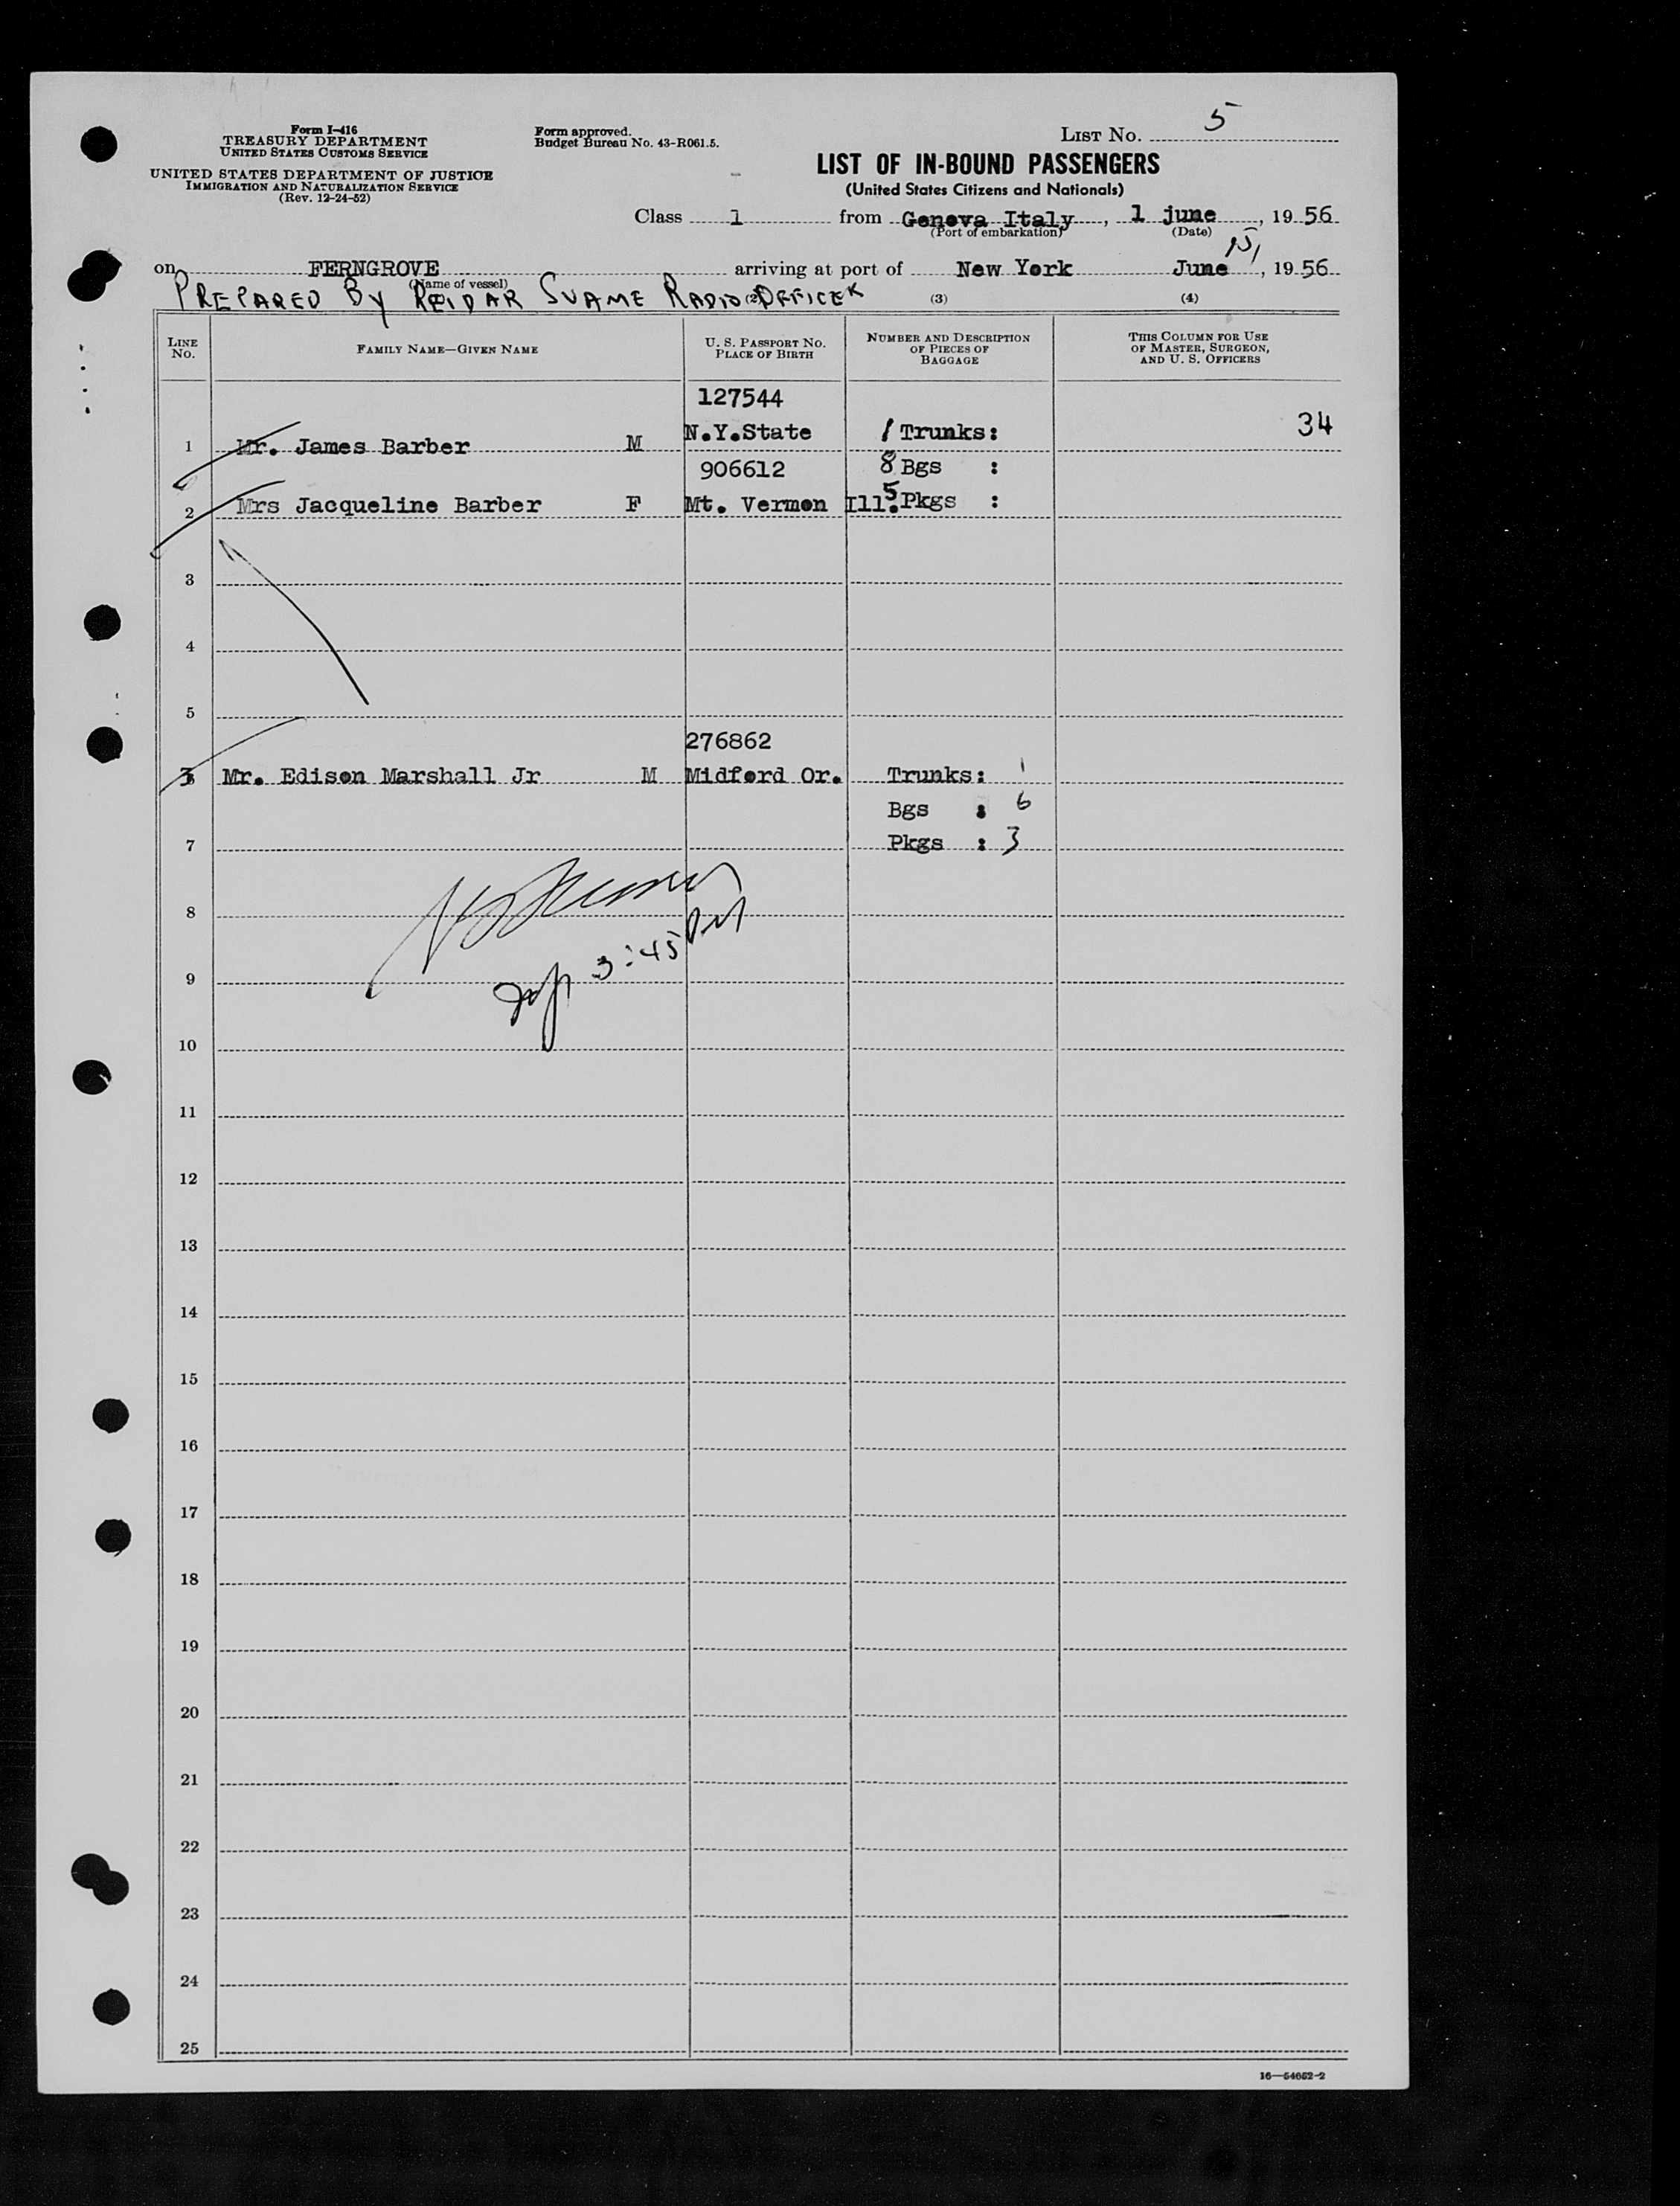 Form I-416
TREASURY DEPARTMENT
UNITED STATES CUSTOMS SERVICE
UNITED STATES DEPARTMENT OF JUSTICE
IMMIGRATION AND NATURALIZATION SERVICE
(Rev. 12-24-52)
Form approved.
Budget Bureau No. 43-R061.5.
LIST No. 5
LIST OF IN-BOUND PASSENGERS
(United States Citizens and Nationals)
Class 1 from Genova Italy, 1 june, 19 56
(Port of embarkation) (Date)
on FERNGROVE arriving at port of New York June 15, 19 56
(Name of vessel)
PREPARED BY REIDAR SVAME RADIO OFFICER (2) (3) (4)
LINE No. FAMILY NAME—GIVEN NAME U. S. PASSPORT No. PLACE OF BIRTH NUMBER AND DESCRIPTION OF PIECES OF BAGGAGE THIS COLUMN FOR USE OF MASTER, SURGEON, AND U. S. OFFICERS
127544
1 Mr. James Barber M N.Y.State 1 Trunks: 34
906612 8 Bgs :
2 Mrs Jacqueline Barber F Mt. Vermon Ill. 5 Pkgs :
3
4
5
276862
3 Mr. Edison Marshall Jr M Midford Or. Trunks: 1
Bgs : 6
7 Pkgs : 3
8
3:45 PM
9
10
11
12
13
14
15
16
17
18
19
20
21
22
23
24
25
16—54652-2